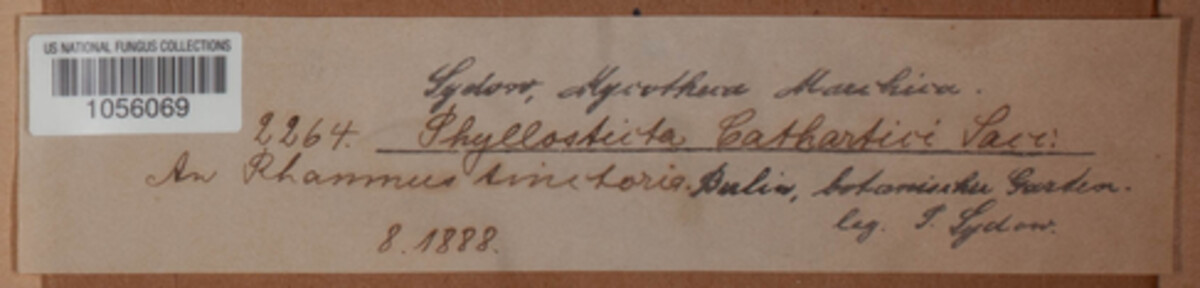 US NATIONAL FUNGUS COLLECTIONS
1056069
Sydow, Mycotheca Marchica.
2264. Phyllosticta Cathartici Sacc:
An Rhamnus tinctoria. Berlin, botanischer Garten.
8. 1888. leg. P. Sydow.